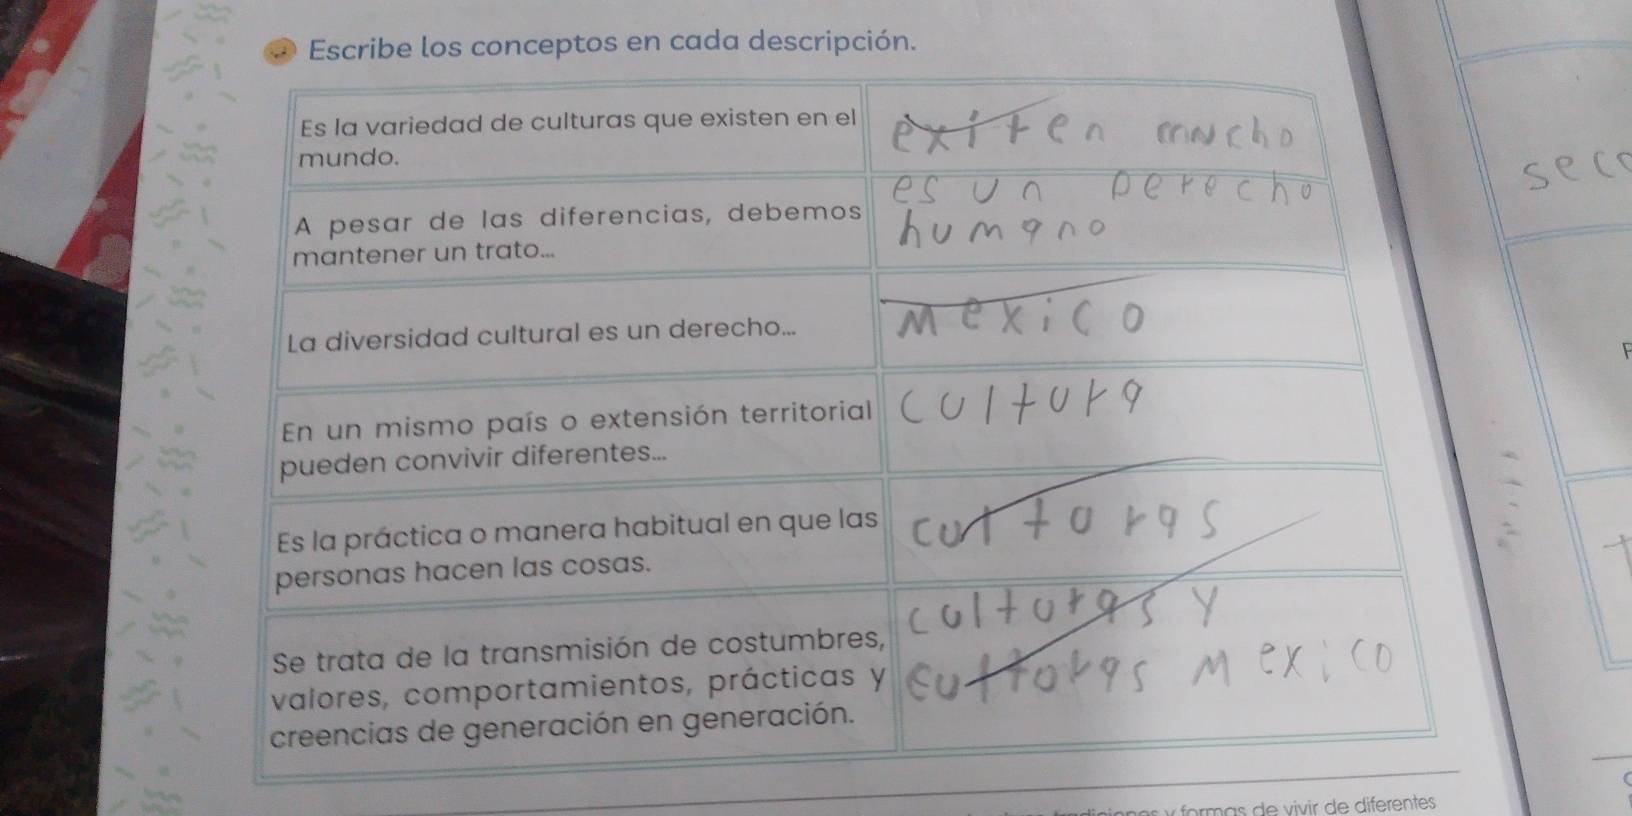 Escribe los conceptos en cada descripción.
Es la variedad de culturas que existen en el
mundo.
exiten mucho
A pesar de las diferencias, debemos
mantener un trato...
es un Derecho
humano
La diversidad cultural es un derecho...
Mexico
En un mismo país o extensión territorial
pueden convivir diferentes...
cultura
Es la práctica o manera habitual en que las
personas hacen las cosas.
culturas
Se trata de la transmisión de costumbres,
valores, comportamientos, prácticas y
creencias de generación en generación.
culturas y
culturas Mexico
y formas de vivir de diferentes